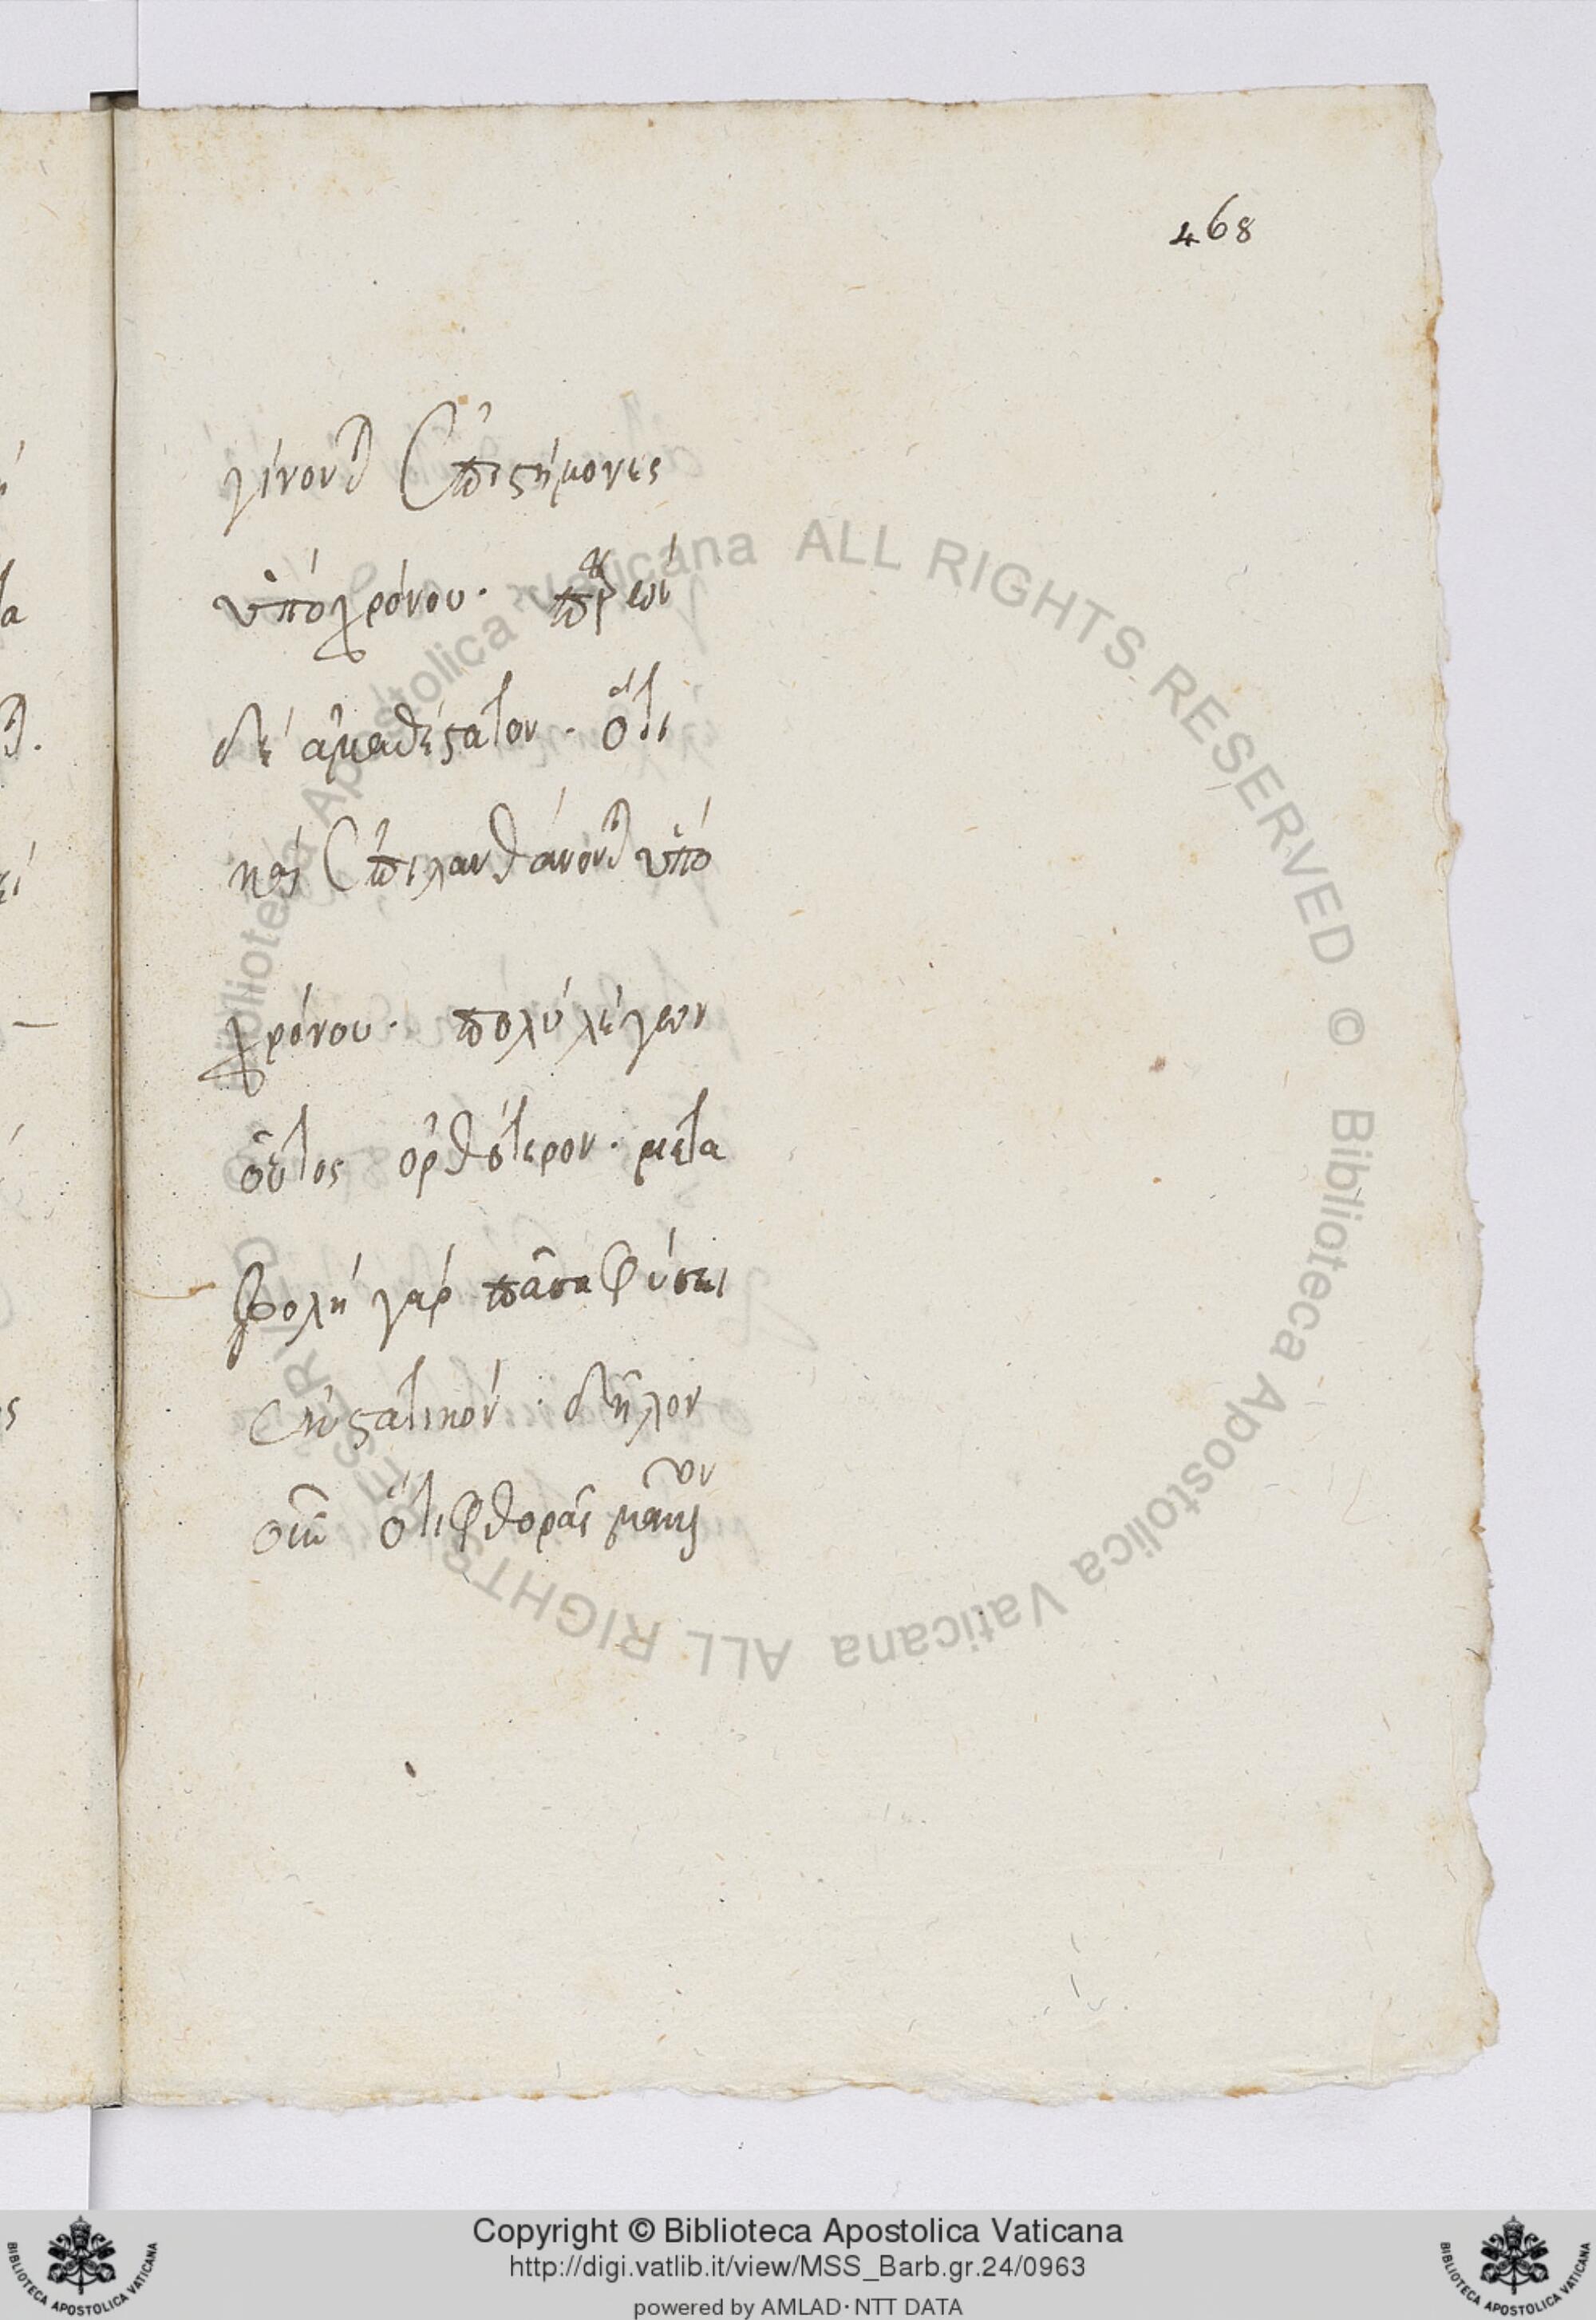 468
γίνονται ἐπιστήμονες
ὑπὸ χρόνου· πάρων
δὲ ἀμαθέστατον· ὅτι
καὶ ἐπιλανθάνονται ὑπὸ
χρόνου· πολὺ λέγων
οὗτος ὀρθότερον· μετα
βολὴ γὰρ πᾶσα φύσει
ἐκστατικόν· δῆλον
οὖν ὅτι φθορᾶς
Bibliotheca Apostolica Vaticana ALL RIGHTS RESERVED © Biblioteca Apostolica Vaticana ALL RIGHTS RESERVED ©
Copyright © Biblioteca Apostolica Vaticana
http://digi.vatlib.it/view/MSS_Barb.gr.24/0963
powered by AMLAD·NTT DATA
BIBLIOTECA APOSTOLICA VATICANA
BIBLIOTECA APOSTOLICA VATICANA